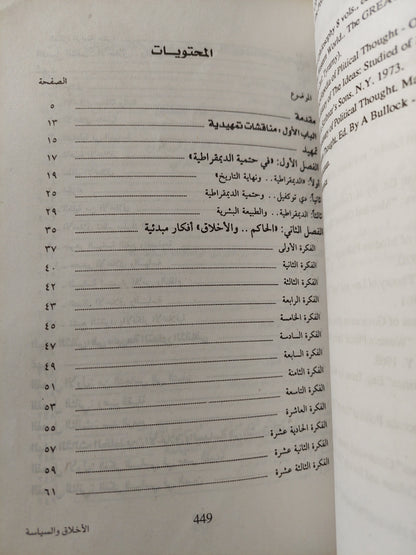 المحتويــات
الموضوع الصفحة
مقدمة ٥
الباب الأول: مناقشات تمهيدية ١٣
تمهيد ١٥
الفصل الأول: «في حتمية الديمقراطية» ١٧
أولاً: «الديمقراطية.. ونهاية التاريخ» ١٩
ثانياً: دي توكفيل.. وحتمية الديمقراطية ٢٥
ثالثاً: الديمقراطية.. والطبيعة البشرية ٢٩
الفصل الثاني: «الحاكم.. والأخلاق» أفكار مبدئية ٣٥
الفكرة الأولى ٣٧
الفكرة الثانية ٤٠
الفكرة الثالثة ٤٢
الفكرة الرابعة ٤٣
الفكرة الخامسة ٤٥
الفكرة السادسة ٤٧
الفكرة السابعة ٤٩
الفكرة الثامنة ٥١
الفكرة التاسعة ٥٣
الفكرة العاشرة ٥٥
الفكرة الحادية عشرة ٥٧
الفكرة الثانية عشرة ٥٩
الفكرة الثالثة عشرة ٦١
449
الأخلاق والسياسة
8 vols.,
World.. The GREA
of Plitical Thought -
of The Ideas: Studied of
Sons. N.Y. 1973.
of Political Thought.
Ed. By A Bullock